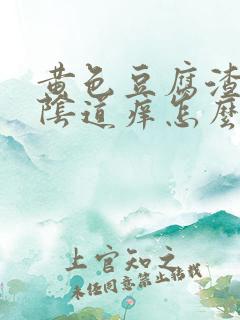 黄色豆腐渣
陰道痒怎麼
上官知之
未经同意禁止转载